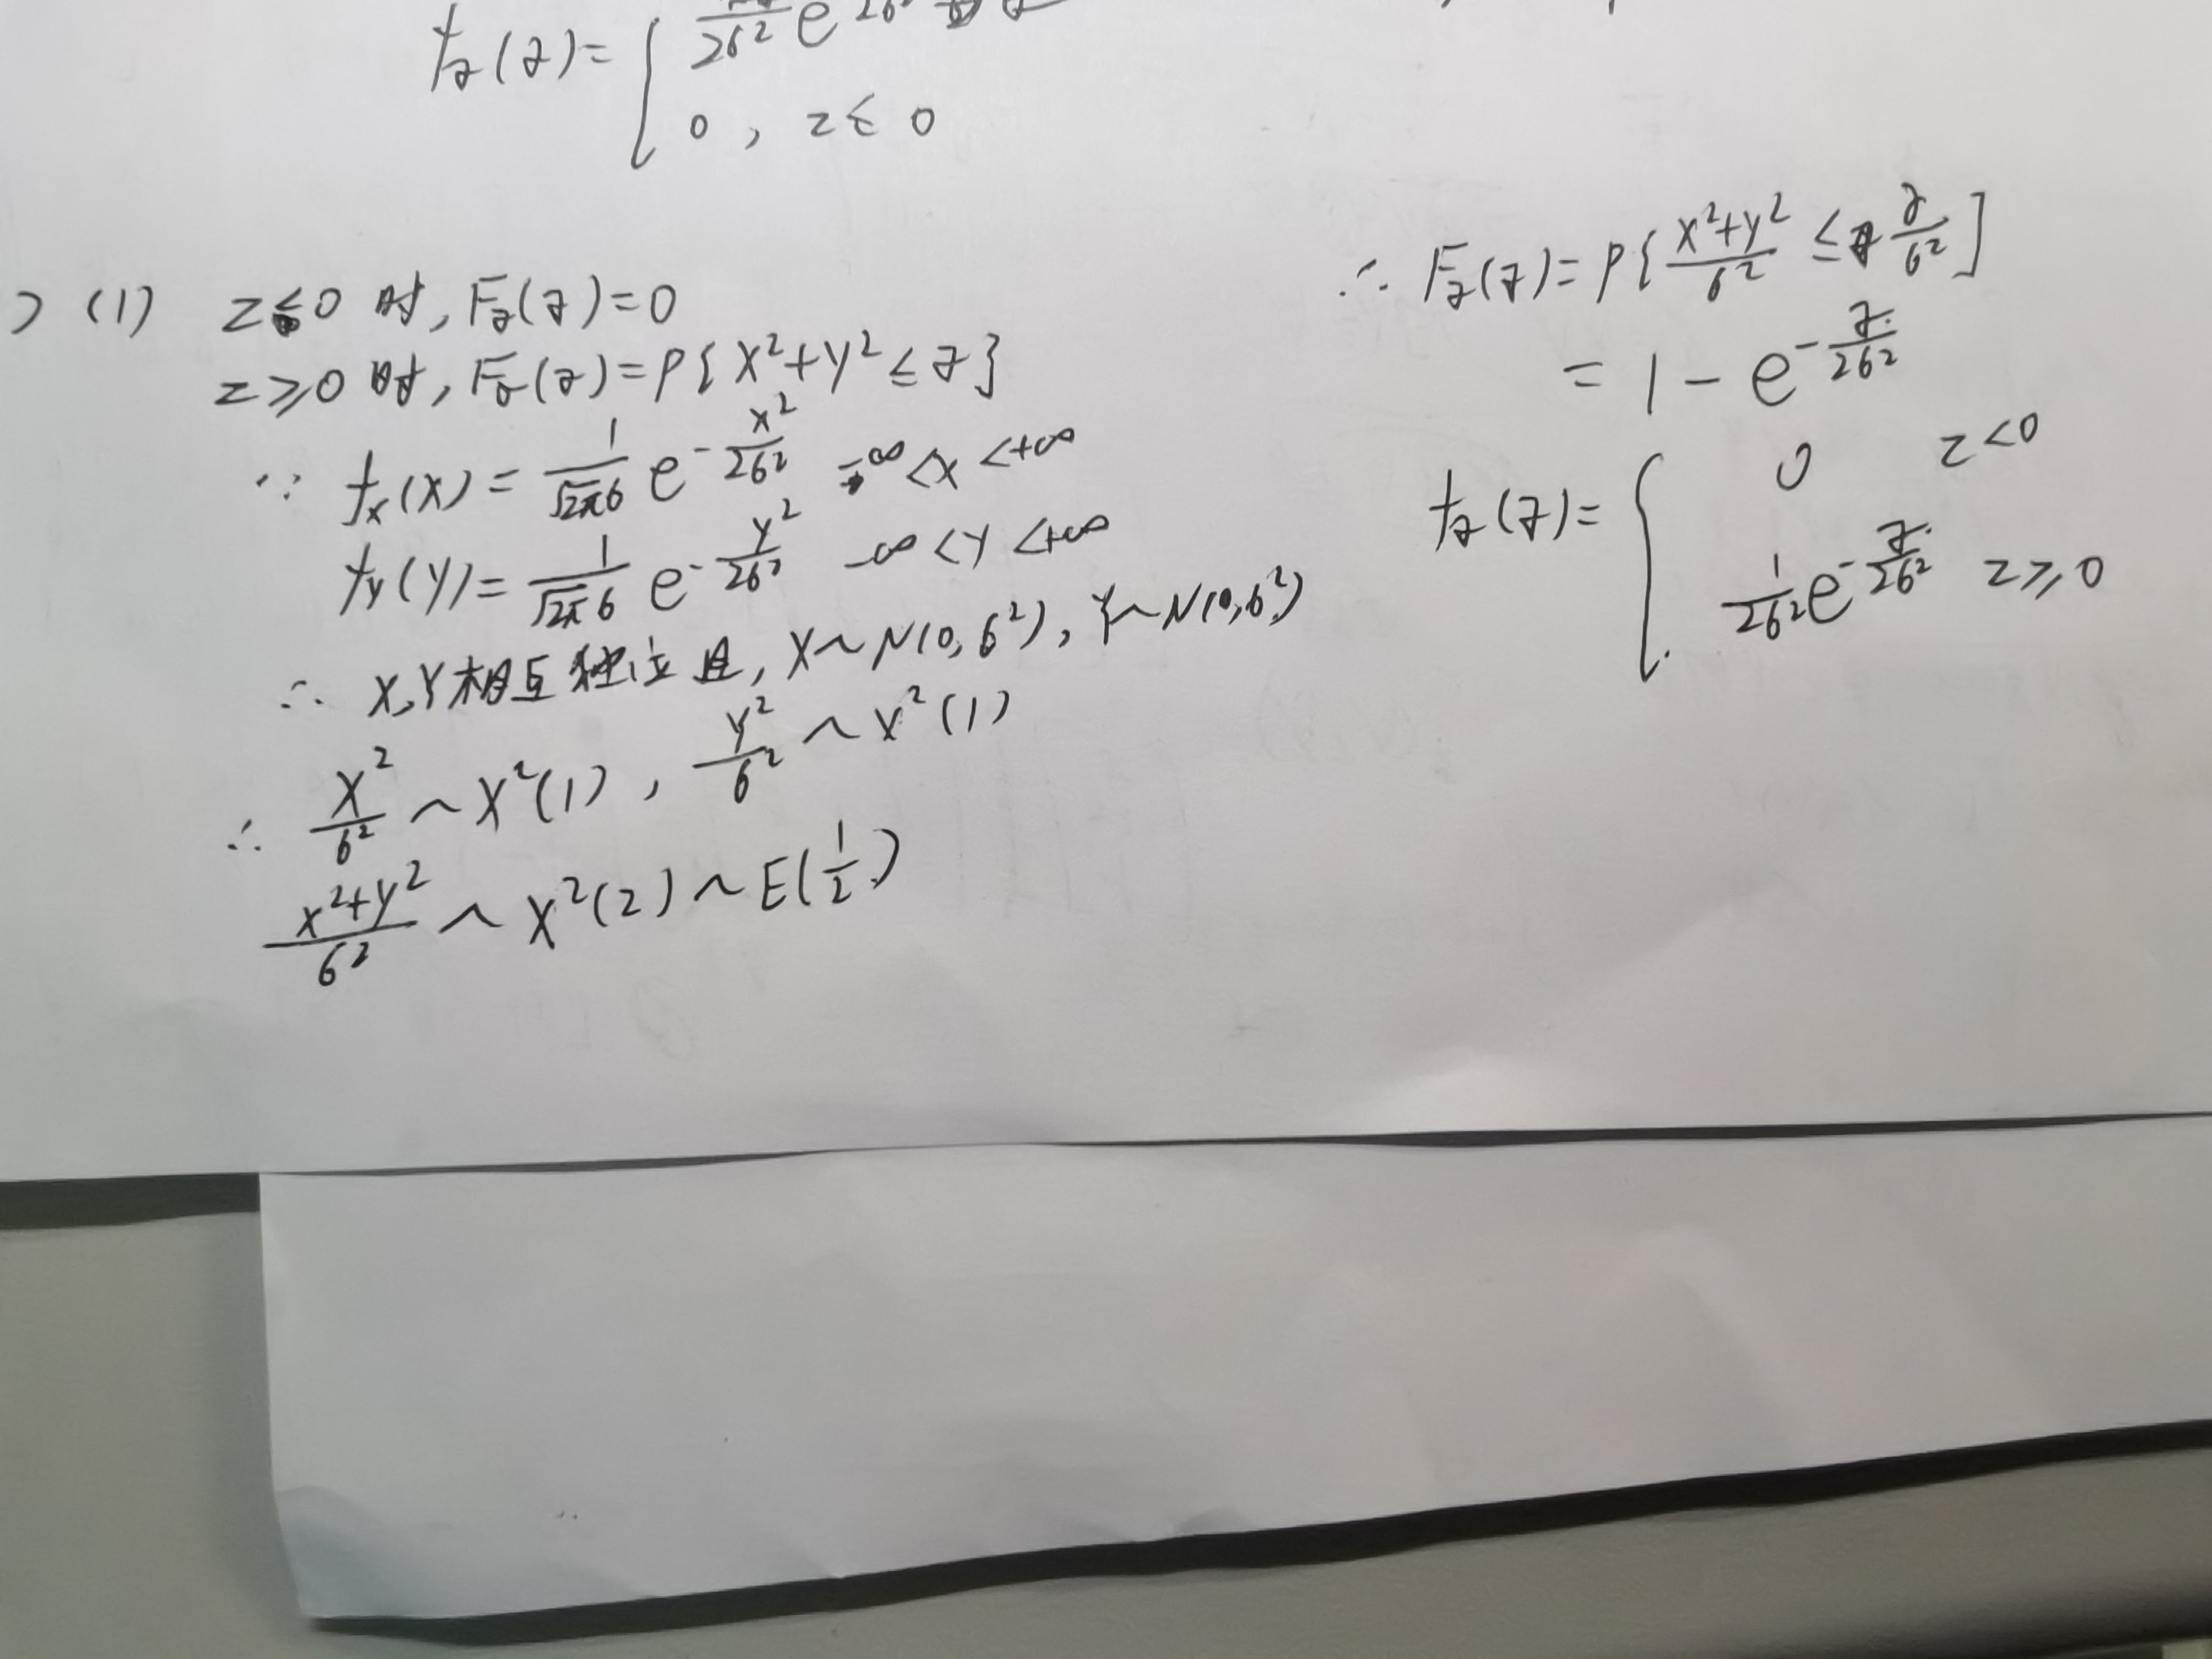 f_z(z)={ 1/2σ² e
0, z≤0
2 (1) z≤0时, F_z(z)=0
z≥0时, F_z(z)=P{X²+Y²≤z}
∵ f_X(x)= 1/(√2π σ) e^(-x²/2σ²) -∞<x<+∞
f_Y(y)= 1/(√2π σ) e^(-y²/2σ²) -∞<y<+∞
∴ X,Y相互独立且, X~N(0,σ²), Y~N(0,σ²)
∴ X²/σ² ~ χ²(1), Y²/σ² ~ χ²(1)
(X²+Y²)/σ² ~ χ²(2) ~ E(1/2)
∴ F_z(z)=P{(X²+Y²)/σ² ≤ z/σ²]
= 1 - e^(-z/2σ²)
f_z(z)={ 0 z<0
1/2σ² e^(-z/2σ²) z≥0